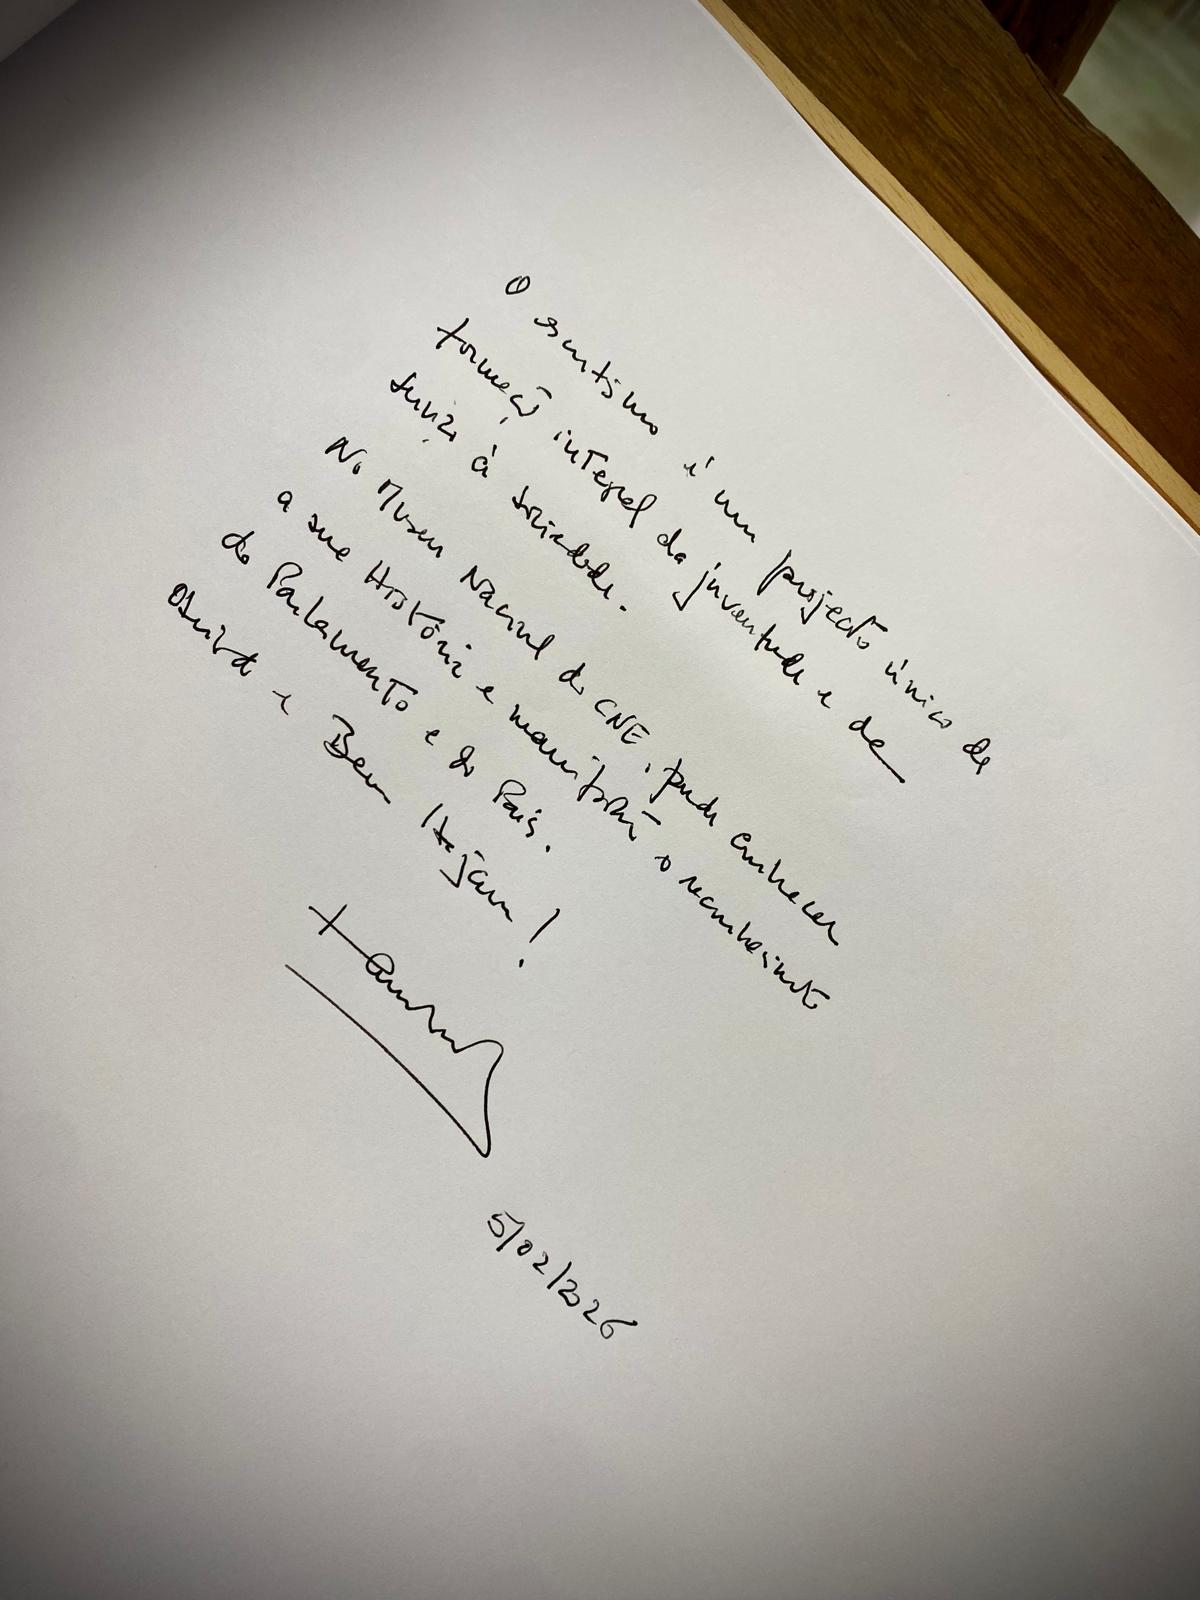 O escutismo é um projecto único de
formação integral da juventude e de
serviço à sociedade.
No Museu Nacional do CNE, pude conhecer
a sua História e manifestar o reconhecimento
do Parlamento e do País.
Obrigado e Bem Hajam!
5/02/2026